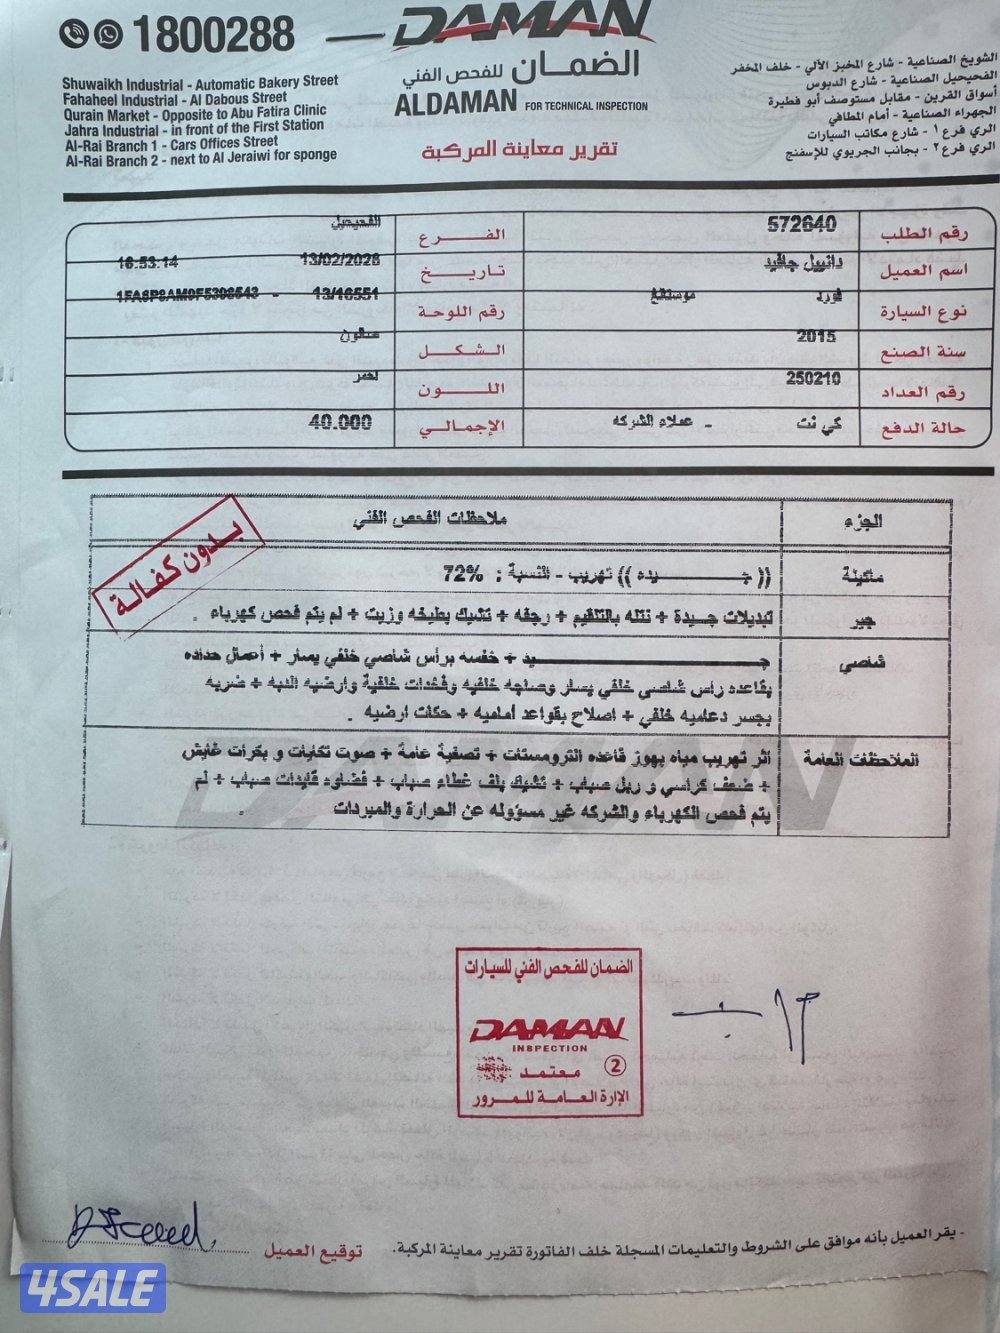 1800288
DAMAN
الضمـــان للفحص الفني
ALDAMAN FOR TECHNICAL INSPECTION
تقرير معاينة المركبة
Shuwaikh Industrial - Automatic Bakery Street
Fahaheel Industrial - Al Dabous Street
Qurain Market - Opposite to Abu Fatira Clinic
Jahra Industrial - in front of the First Station
Al-Rai Branch 1 - Cars Offices Street
Al-Rai Branch 2 - next to Al Jeraiwi for sponge
الشويخ الصناعية - شارع المخبز الآلي - خلف المخفر
الفحيحيل الصناعية - شارع الدبوس
أسواق القرين - مقابل مستوصف أبو فطيرة
الجهراء الصناعية - أمام المطافي
الري فرع ١ - شارع مكاتب السيارات
الري فرع ٢ - بجانب الجريوي للإسفنج
رقم الطلب 572640 الفـــرع الفحيحيل
اسم العميل دانييل جافيد تاريـــخ 13/02/2026 16:53:14
نوع السيارة فورد موستنغ رقم اللوحة 13/16551 -
سنة الصنع 2015 الشـكــل صالون
رقم العداد 250210 اللـــون احمر
حالة الدفع كي نت - عملاء الشركه الإجمـالـي 40.000
الجزء ملاحظات الفحص الفني
بدون كفالة
ماكينة (( جـــــيده )) تهريب - النسبة : 72%
جير تبديلات جـيدة + نتله بالتنقيم + رجفه + تشيك بطيخه وزيت + لم يتم فحص كهرباء .
شاصي جـــــيد + خفسه برأس شاصي خلفي يسار + أعمال حداده
بقاعده راس شاصي خلفي يسار وصاجه خلفيه وفخدات خلفية وارضيه الدبه + ضربه
بجسر دعاميه خلفي + اصلاح بقواعد أماميه + حكات ارضيه .
الملاحظات العامة اثر تهريب مياه بهوز قاعده الترومستات + تصفية عامة + صوت تكايات و بكرات غايش
+ ضعف كراسي و ربل صباب + تشيك بلف غطاء صباب + فضاوه قايدات صباب + لم
يتم فحص الكهرباء والشركه غير مسؤوله عن الحرارة والمبردات .
الضمان للفحص الفني للسيارات
DAMAN
INSPECTION
معتمد 2
الإرة العامـة للمـرور
- يقر العميل بأنه موافق على الشروط والتعليمات المسجلة خلف الفاتورة تقرير معاينة المركبة.
توقيع العميل
4SALE